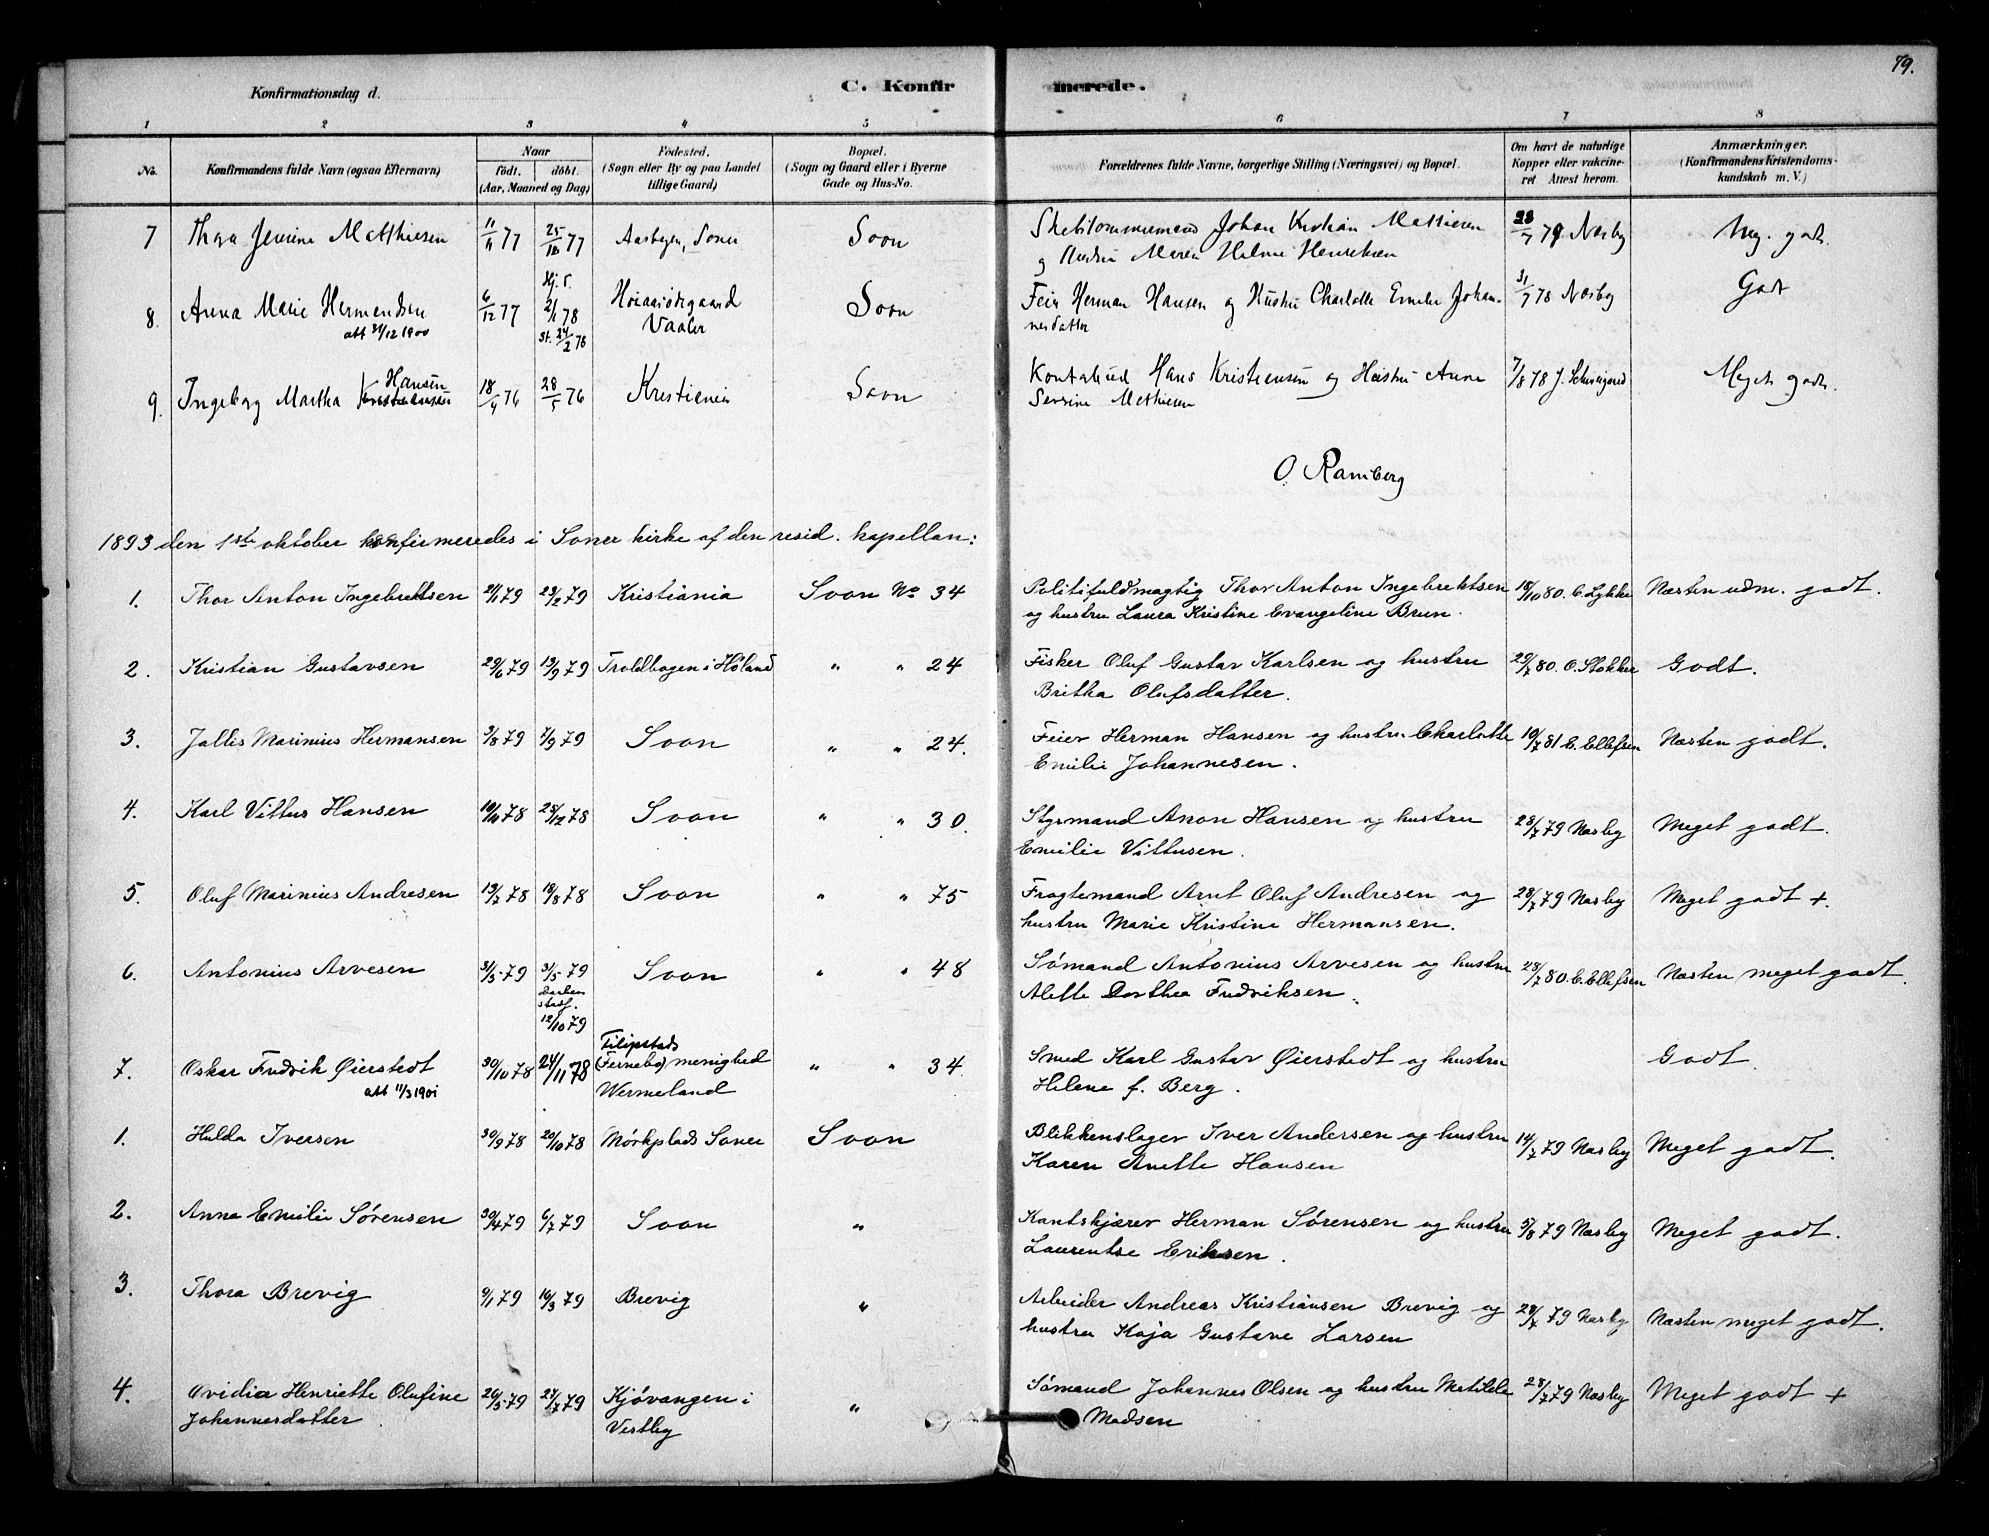 79.
Konfirmationsdag d. C. Konfir merede.
1 2 3 4 5 6 7 8
No. Konfirmandens fulde Navn (ogsaa Efternavn) Naar født. døbt. (Aar, Maaned og Dag) Fødested. (Sogn eller By og paa Landet tillige Gaard) Bopæl. (Sogn og Gaard eller i Byerne Gade og Hus-No. Forældrenes fulde Navne, borgerlige Stilling (Næringsvei) og Bopæl. Om havt de naturlige Kopper eller vakcineret Attest herom. Anmærkninger. (Konfirmandens Kristendomskundskab m. V.)
7 Thora Jensine Matthiesen 11/11 77 25/12 77 Soner Soon Johan Kristian Mathiesen 28/7 79 Næsby Meg. godt.
og Hustru Maren Helene Henriksen
8. Anna Marie Hermansen 6/12 77 Hj. d. 2/1 78 Soon Feier Herman Hansen og Hustru Charlotte Emilie Johan- 31/7 78 Næsby Godt
att 31/12 1900 st. 24/2 78 Vaaler nesdatter
9. Ingeborg Martha Hansen Kristiansen 18/4 76 28/5 76 Kristiania Soon Hans Kristiansen og Hustru Anne 7/8 78 J. Meget godt.
Severine Mathiesen
O. Ramberg
1893 den 1ste oktober konfirmeredes i Soner kirke af den resid. kapellan:
1. Thor Anton Ingebrettsen 21/1 79 23/2 79 Kristiania Soon No 34 Politifuldmægtig Thor Anton Ingebrektsen 18/10 80. C. Lykke Næsten udm. godt.
og hustru Laura Kristine Evangeline Brun.
2. Kristian Gustavsen 29/6 79 19/9 79 Troldbogen i Høland " " 24 Fisker Oluf Gustav Karlsen og hustru 29/7 80. O. Stokker Godt.
Britha Olufsdatter.
3. Jallis Marinius Hermansen 3/8 79 7/9 79 Soon " " 24. Feier Herman Hansen og hustru Charlotte 10/7 81 E. Ellefsen Næsten godt.
Emilie Johannesen.
4. Karl Vittus Hansen 10/11 78 25/12 78 Soon " " 30. Styrmand Anon Hansen og hustru 28/7 79 Næsby Meget godt.
Emilie Vittusen.
5. Oluf Marinius Andresen 19/7 78 18/8 78 Soon " " 75 Fragtemand Arnt Oluf Andresen og 28/7 79 Næsby Meget godt +.
hustru Marie Kristine Hermansen.
6. Antonius Arvesen 31/3 79 3/5 79 Soon " " 48 Sømand Antonius Arvesen og hustru 28/7 80. E. Ellefsen Næsten meget godt.
12/10 79 Alette Dorthea Fredriksen.
7. Oskar Fredrik Øierstedt 30/10 78 24/11 78 Filipstads (Fernebo) menighed Wermeland " " 34 Smed Karl Gustav Øierstedt og hustru Godt.
att 11/3 1901 Helene f. Berg.
1. Hulda Iversen 30/9 78 20/10 78 Mørkplads Soner Soon Blikkenslager Iver Andersen og hustru 14/7 79 Næsby Meget godt.
Karen Anette Hansen
2. Anna Emilie Sørensen 30/4 79 6/7 79 Soon " Kantskjærer Herman Sørensen og hustru 5/8 79 Næsby Meget godt.
Laurentse Eriksen.
3. Thora Brevig 9/1 79 16/3 79 Brevig " Arbeider Andreas Kristiansen Brevig og 28/7 79 Næsby Næsten meget godt.
hustru Kaja Gustave Larsen
4. Ovidia Henriette Olufine 26/5 79 27/7 79 Kjøvangen i " Sømand Johannes Olsen og hustru Matilde 28/7 79 Næsby Meget godt +
Johannesdatter Vestby Madsen